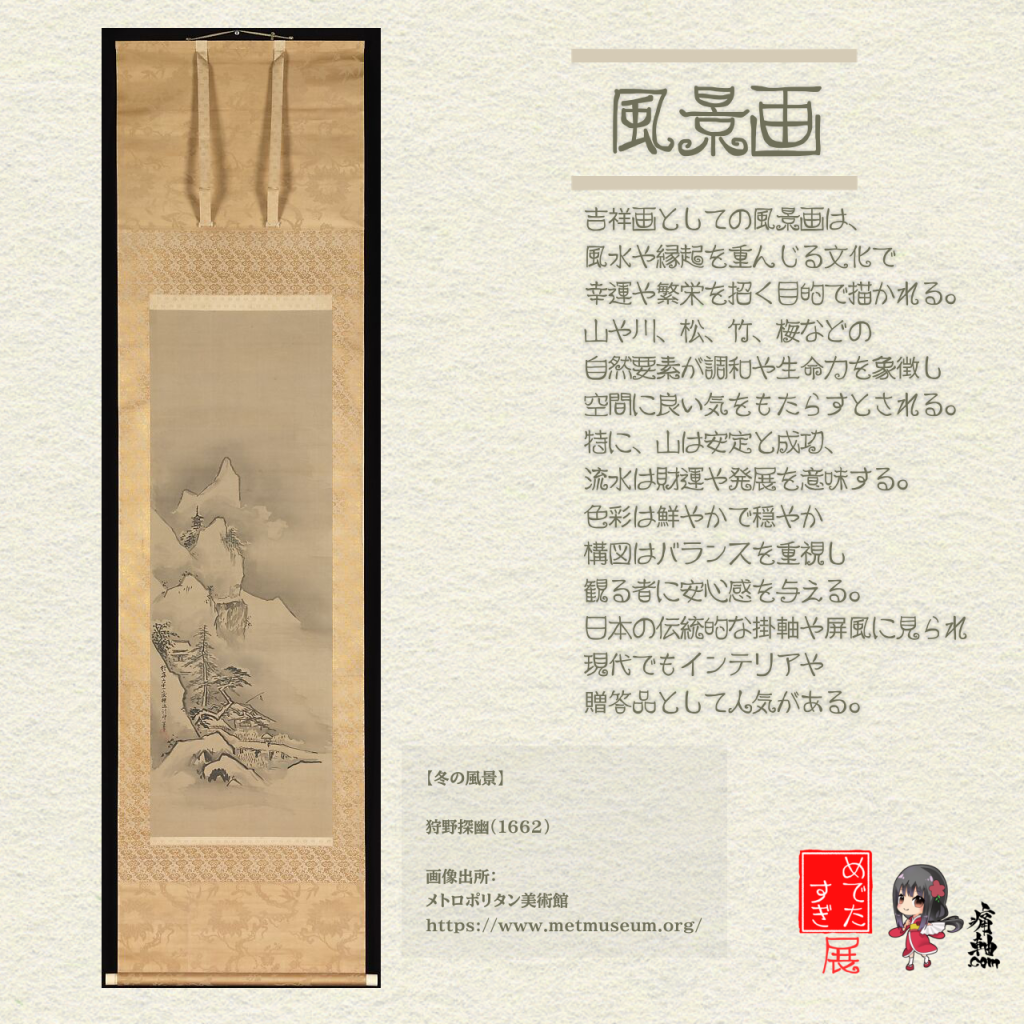 風景画
吉祥画としての風景画は、
風水や縁起を重んじる文化で
幸運や繁栄を招く目的で描かれる。
山や川、松、竹、梅などの
自然要素が調和や生命力を象徴し
空間に良い気をもたらすとされる。
特に、山は安定と成功、
流水は財運や発展を意味する。
色彩は鮮やかで穏やか
構図はバランスを重視し
観る者に安心感を与える。
日本の伝統的な掛軸や屏風に見られ
現代でもインテリアや
贈答品として人気がある。
【冬の風景】
狩野探幽(1662)
画像出所:
メトロポリタン美術館
https://www.metmuseum.org/
めでた
すぎ
展
痛軸
.com